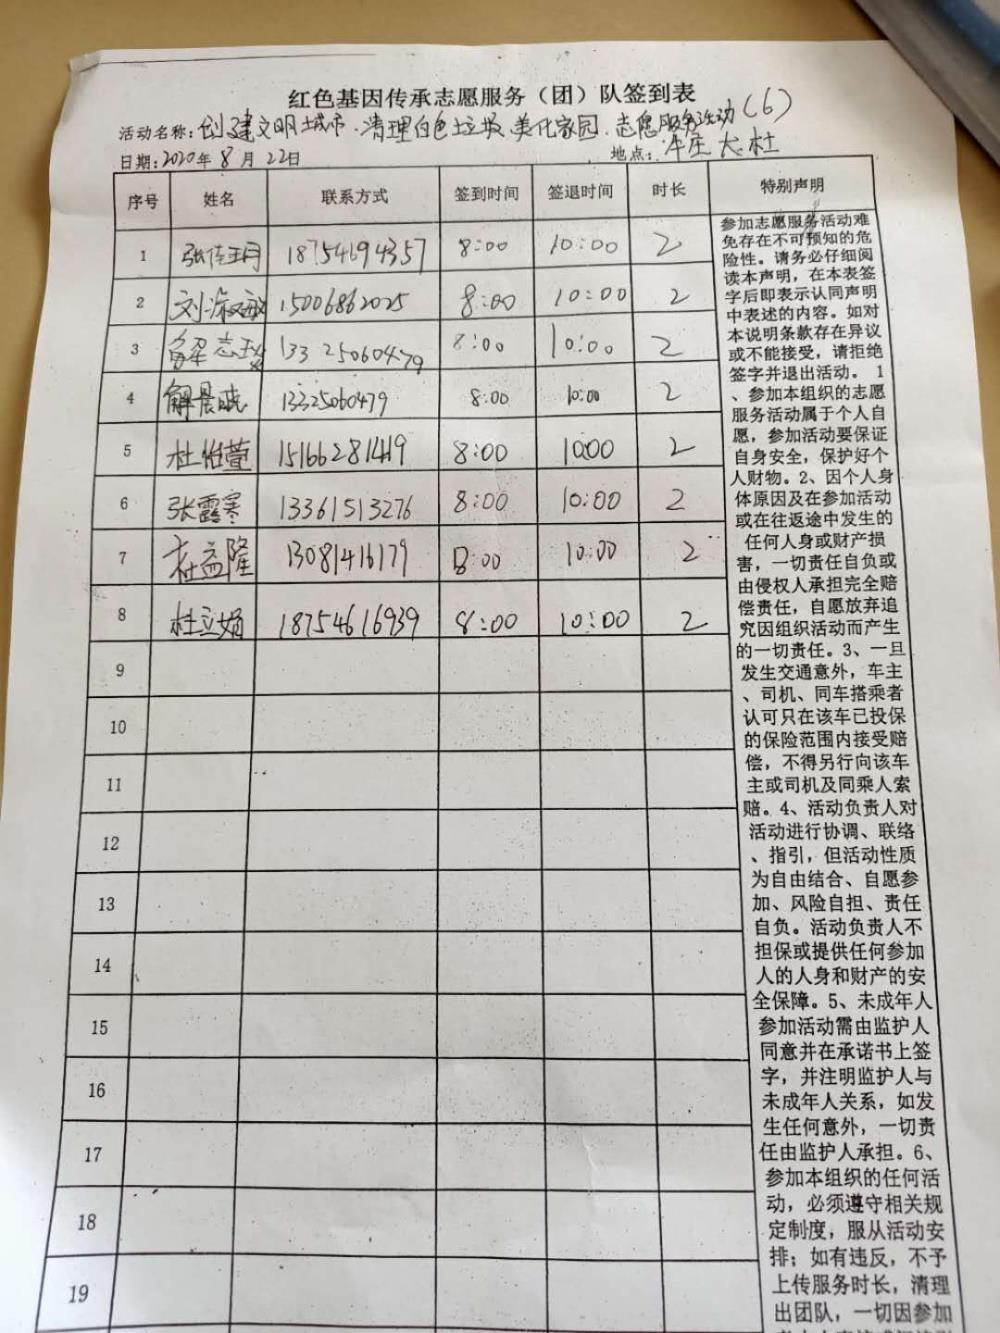 红色基因传承志愿服务（团）队签到表
活动名称：创建文明城市·清理白色垃圾、美化家园·志愿服务活动(6)
日期：2020年8月22日 地点：牛庄大杜
序号 姓名 联系方式 签到时间 签退时间 时长 特别声明
1 张佳玥 18754694357 8:00 10:00 2
2 刘淑敏 15006862025 8:00 10:00 2
3 解志 13325060479 8:00 10:00 2
4 解晨曦 13325060479 8:00 10:00 2
5 杜怡萱 15166281419 8:00 1000 2
6 张露寒 13361513276 8:00 10:00 2
7 杜益隆 13081416179 8:00 10:00 2
8 杜立娟 18754616939 8:00 10:00 2
9
10
11
12
13
14
15
16
17
18
19
参加志愿服务活动难
免存在不可预知的危
险性。请务必仔细阅
读本声明，在本表签
字后即表示认同声明
中表述的内容。如对
本说明条款存在异议
或不能接受，请拒绝
签字并退出活动。 1
、参加本组织的志愿
服务活动属于个人自
愿，参加活动要保证
自身安全，保护好个
人财物。2、因个人身
体原因及在参加活动
或在往返途中发生的
任何人身或财产损
害，一切责任自负或
由侵权人承担完全赔
偿责任，自愿放弃追
究因组织活动而产生
的一切责任。3、一旦
发生交通意外，车主
、司机、同车搭乘者
认可只在该车已投保
的保险范围内接受赔
偿，不得另行向该车
主或司机及同乘人索
赔。4、活动负责人对
活动进行协调、联络
、指引，但活动性质
为自由结合、自愿参
加、风险自担、责任
自负。活动负责人不
担保或提供任何参加
人的人身和财产的安
全保障。5、未成年人
参加活动需由监护人
同意并在承诺书上签
字，并注明监护人与
未成年人关系，如发
生任何意外，一切责
任由监护人承担。6、
参加本组织的任何活
动，必须遵守相关规
定制度，服从活动安
排；如有违反，不予
上传服务时长，清理
出团队，一切因参加